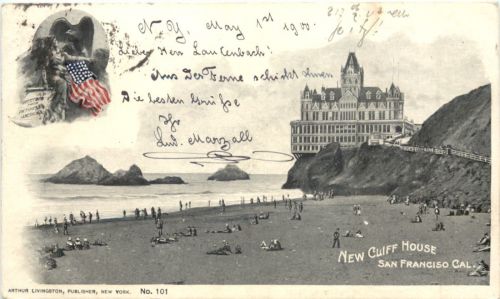 N. Y., May 1st 1900.
Lieber Herr Lautenbach!
Aus Der Ferne schickt Ihnen
Die besten Grüße
Ihr
Lud. Marzall
NEW CLIFF HOUSE
SAN FRANCISO CAL.
ARTHUR LIVINGSTON, PUBLISHER, NEW YORK. No. 101